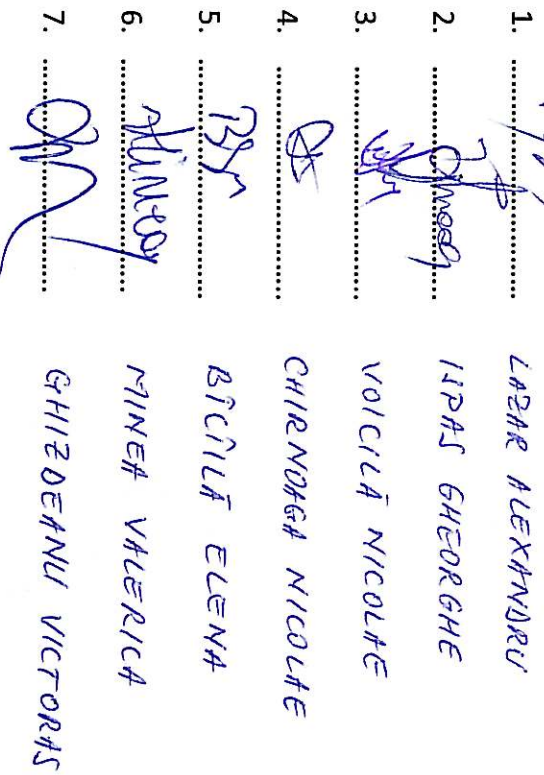 1. .............................. LAZAR ALEXANDRU
2. .............................. ISPAS GHEORGHE
3. .............................. VOICILĂ NICOLAE
4. .............................. CHIRNOAGA NICOLAE
5. .............................. BÎCÎILĂ ELENA
6. .............................. MINEA VALERICA
7. .............................. GHIZDEANU VICTORAS